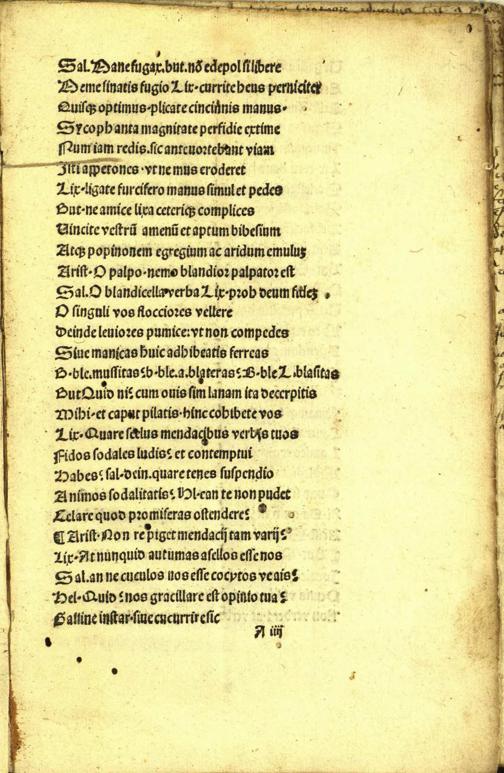 Sal. Mane fugax. but. nō edepol si libere
Me me sinatis fugio Lix. currite heus perniciter
Quisqꝫ optimus. plicate cincinnis manus.
Sycophanta magnitate perfidie extime
Num iam redis. sic antevortebant viam
Isti appetones. vt ne mus eroderet
Lix. ligate furcifero manus simul et pedes
But. ne amice lixa ceteriqꝫ complices
Uincite vestrū amenū et aptum bibesium
Atqꝫ popinonem egregium ac aridum emuluꝫ
Arist. O palpo. nemo blandior palpator est
Sal. O blandicella verba Lix. proh deum fideꝫ
O singuli vos flocciores vellere
Deinde leuiores pumice: vt non compedes
Siue manicas huic adhibeatis ferreas
B. ble. mussitas: b. ble. a. blateras: B. ble L. blasitas
But Quid nī: cum ouis sim lanam ita decerpitis
Mihi. et caput pilatis. hinc cohibete vos
Lix. Quare scelus mendacibus verbis tuos
Fidos sodales ludis: et contemptui
Habes: sal. dein. quare tenes suspendio
Animos sodalitatis: Hl. ean te non pudet
Celare quod promiseras ostendere:
¶ Arist. Non te piget mendacij tam varij:
Lix. At nunquid autumas asellos esse nos
Sal. an ne cuculos nos esse cocytos veais:
Hel. Quid: nos gracillare est opinio tua:
Galline instar. siue cucurrire sic
A iiij